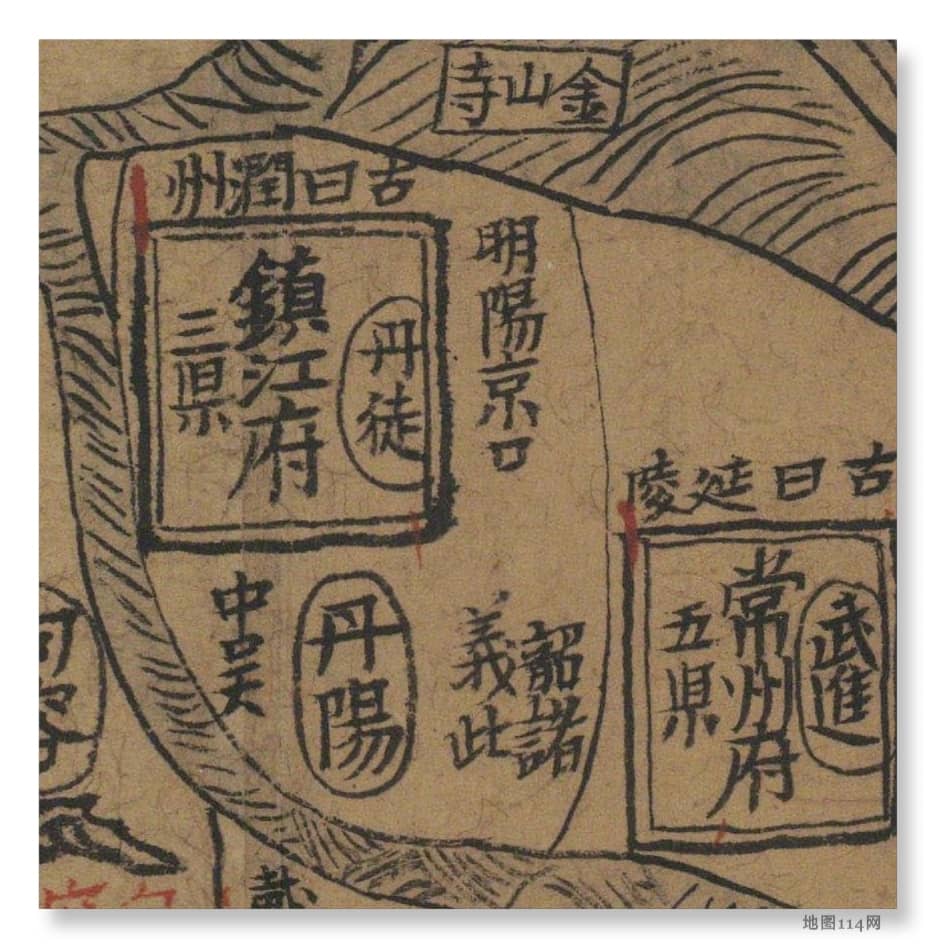 金山寺
古曰潤州
明陽京口
丹徒
鎮江府
三県
古曰延陵
武進
常州府
五県
韶諸
義此
丹陽
中吴
地图114网